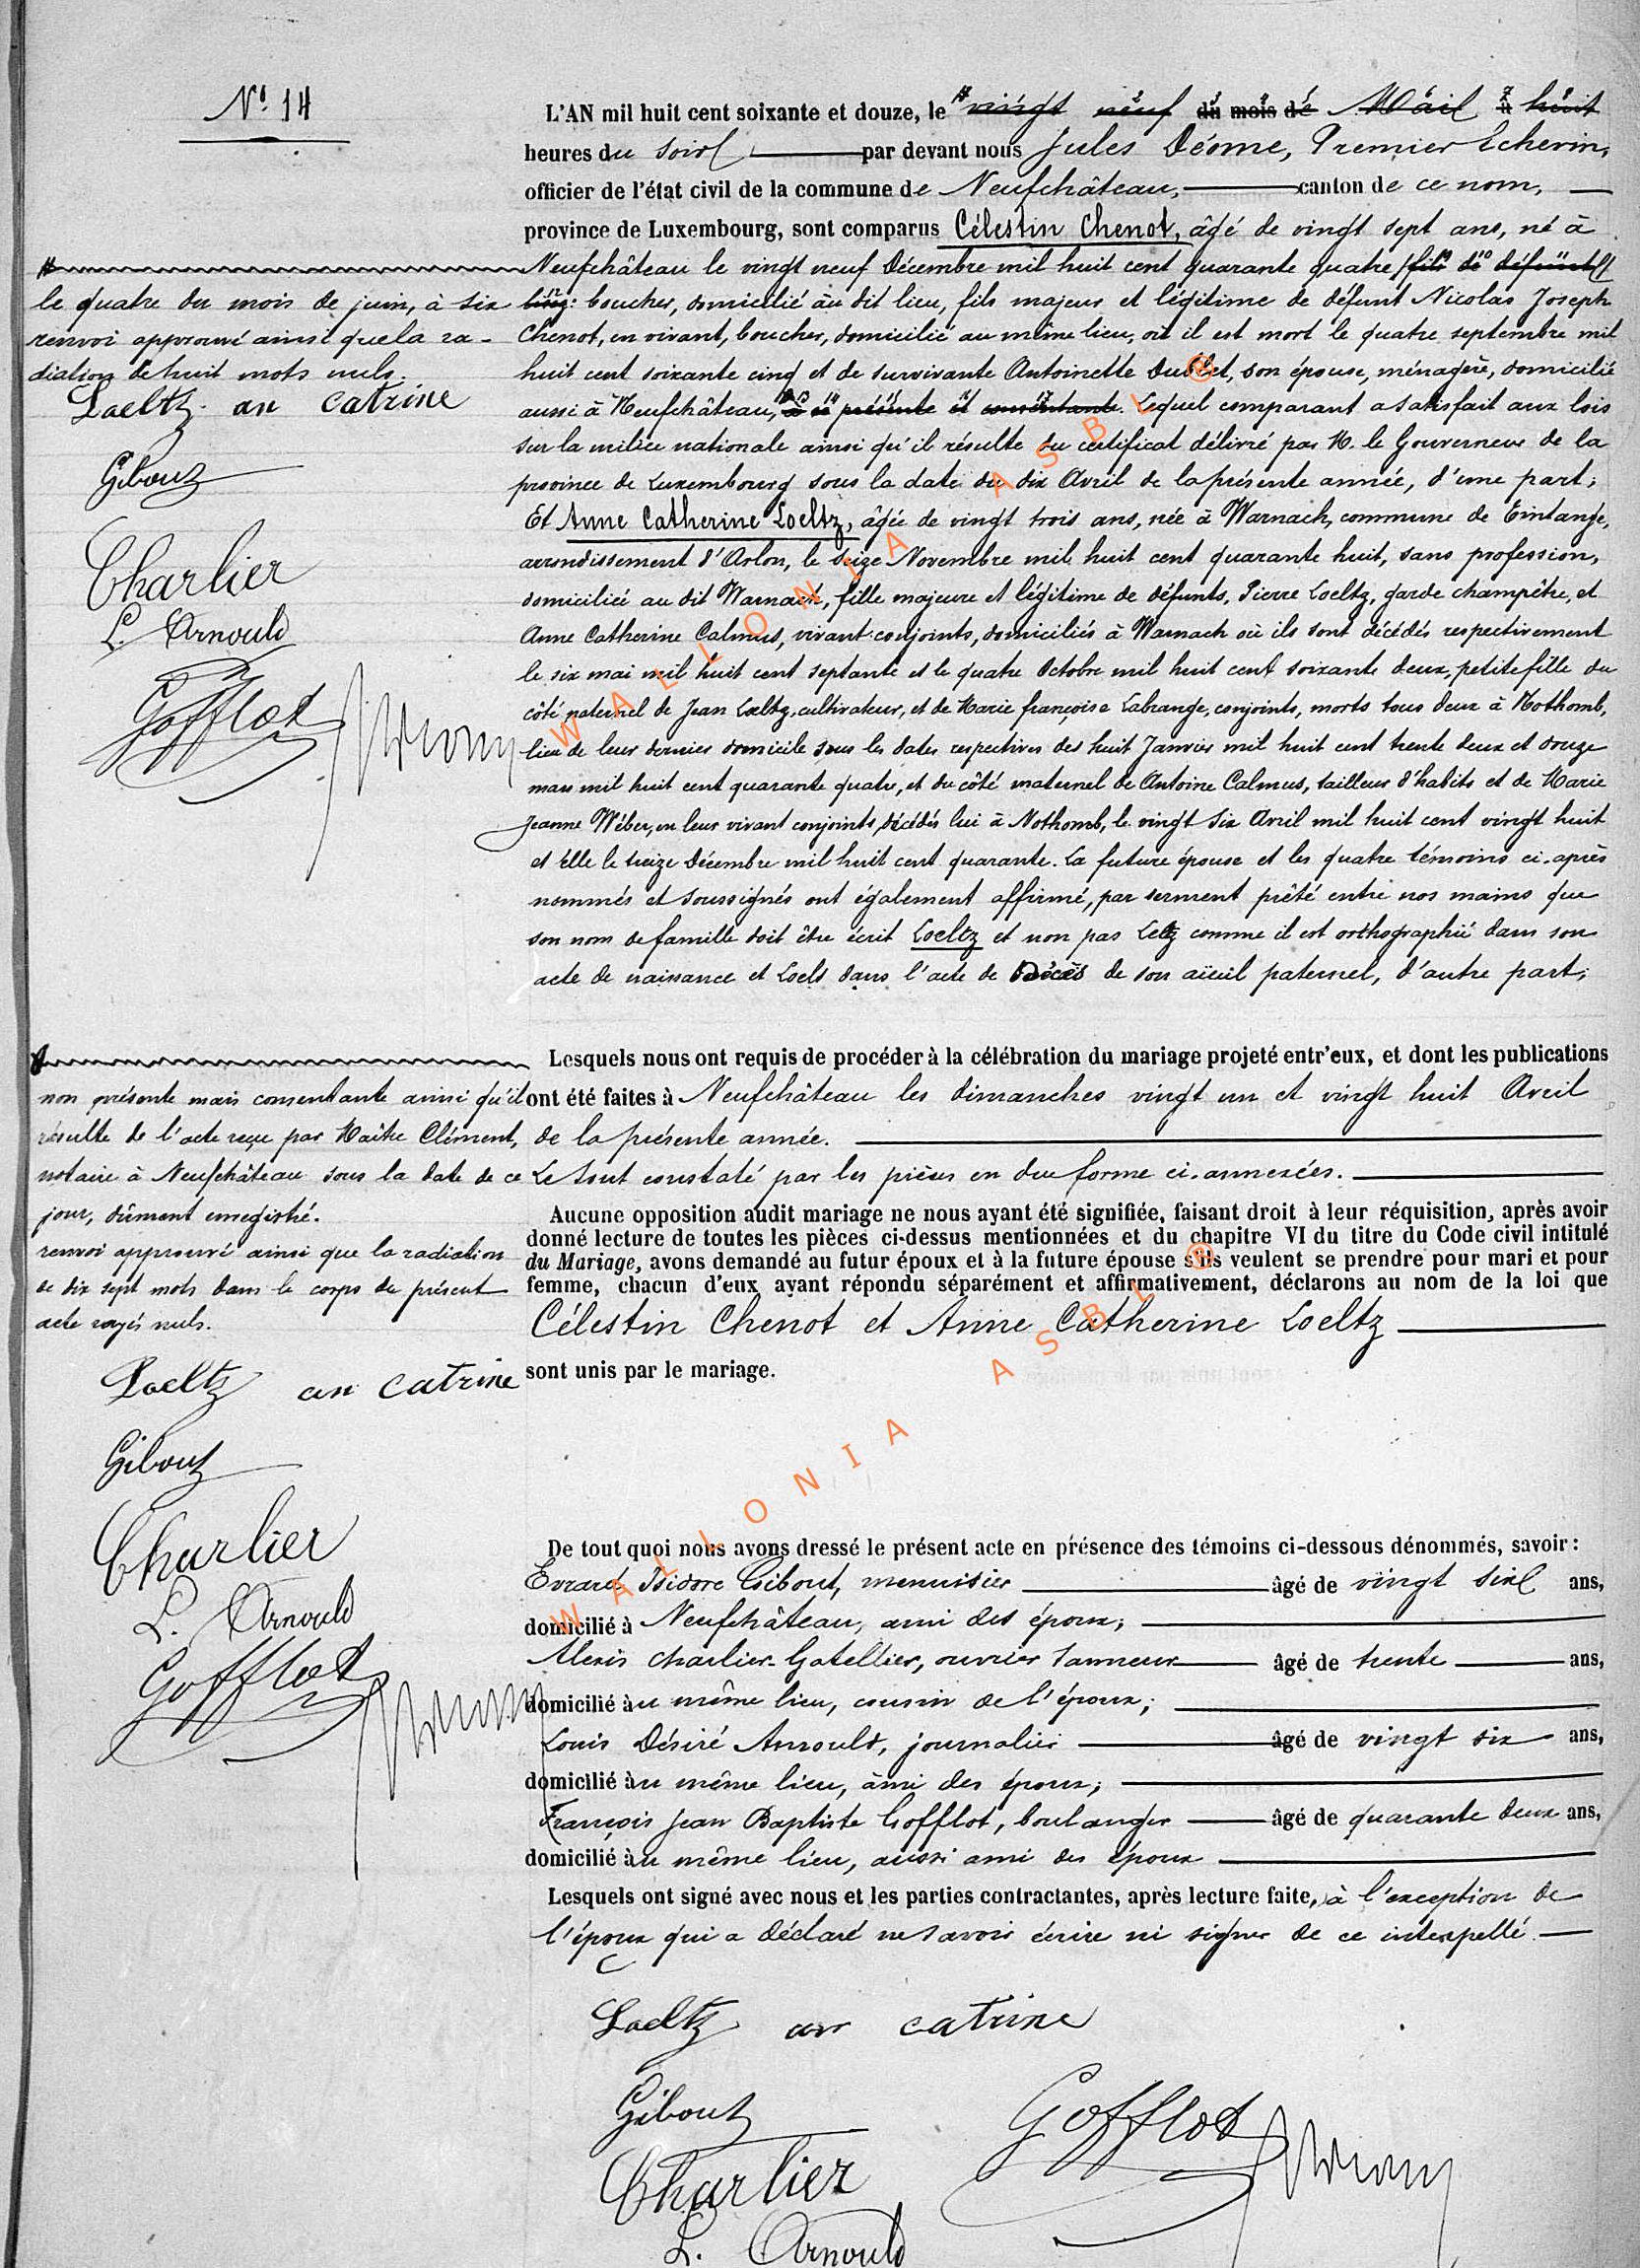 N° 14
L'AN mil huit cent soixante et douze, le vingt neuf du mois de Mai à huit
heures du soir par devant nous Jules Déome, Premier Echevin,
officier de l'état civil de la commune de Neufchâteau, canton de ce nom,
province de Luxembourg, sont comparus Célestin Chenot, âgé de vingt sept ans, né à
Neufchâteau le vingt neuf Décembre mil huit cent quarante quatre fils de défunt
boucher, domicilié au dit lieu, fils majeur et légitime de défunt Nicolas Joseph
Chenot, en vivant, boucher, domicilié au même lieu, où il est mort le quatre septembre mil
huit cent soixante cinq et de survivante Antoinette son épouse, ménagère, domicilié
aussi à Neufchâteau, à ce présente et consentante. Lequel comparant a satisfait aux lois
sur la milice nationale ainsi qu'il résulte du certificat délivré par M. le Gouverneur de la
province de Luxembourg sous la date du dix Avril de la présente année, d'une part;
Et Anne Catherine Loeltz, âgée de vingt trois ans, née à Warnach, commune de Tintange,
arrondissement d'Arlon, le seize Novembre mil huit cent quarante huit, sans profession,
domiciliée au dit Warnach, fille majeure et légitime de défunts, Pierre Loeltz, garde champêtre, et
Anne Catherine Calmus, vivant conjoints, domiciliés à Warnach où ils sont décédés respectivement
le six mai mil huit cent septante et le quatre Octobre mil huit cent soixante deux, petite fille du
côté paternel de Jean Loeltz, cultivateur, et de Marie françoise Labrange, conjoints, morts tous deux à Nothomb,
lieu de leur dernier domicile sous les dates respectives des huit Janvier mil huit cent trente deux et douze
mars mil huit cent quarante quatre, et du côté maternel de Antoine Calmus, tailleur d'habits et de Marie
Jeanne Wéber, en leur vivant conjoints, décédés lui à Nothomb, le vingt six Avril mil huit cent vingt huit
et Elle le treize Décembre mil huit cent quarante. La future épouse et les quatre témoins ci-après
nommés et soussignés ont également affirmé, par serment prêté entre nos mains que
son nom de famille doit être écrit Loeltz et non pas Letz comme il est orthographié dans son
acte de naissance et Loels dans l'acte de Décès de son aïeul paternel, d'autre part;
le quatre du mois de juin, à six
renvoi approuvé ainsi que la ra-
diation de huit mots nuls.
Loeltz an catrine
Gibout
Charlier
L. Arnould
Gofflot
Lesquels nous ont requis de procéder à la célébration du mariage projeté entr'eux, et dont les publications
ont été faites à Neufchâteau les dimanches vingt un et vingt huit Avril
de la présente année.
Le tout constaté par les pièces en due forme ci-annexées.
Aucune opposition audit mariage ne nous ayant été signifiée, faisant droit à leur réquisition, après avoir
donné lecture de toutes les pièces ci-dessus mentionnées et du chapitre VI du titre du Code civil intitulé
du Mariage, avons demandé au futur époux et à la future épouse s'ils veulent se prendre pour mari et pour
femme, chacun d'eux ayant répondu séparément et affirmativement, déclarons au nom de la loi que
Célestin Chenot et Anne Catherine Loeltz
sont unis par le mariage.
non présente mais consentante ainsi qu'il
résulte de l'acte reçu par Maître Clément,
notaire à Neufchâteau sous la date de ce
jour, dûment enregistré.
renvoi approuvé ainsi que la radiation
de dix sept mots dans le corps du présent
acte rayés nuls.
Loeltz an catrine
Gibout
Charlier
L. Arnould
Gofflot
De tout quoi nous avons dressé le présent acte en présence des témoins ci-dessous dénommés, savoir :
Evrard Isidore Gibout, menuisier âgé de vingt six ans,
domicilié à Neufchâteau, ami des époux;
Alexis Charlier-Gatellier, ouvrier tanneur âgé de trente ans,
domicilié au même lieu, cousin de l'époux;
Louis Désiré Arnould, journalier âgé de vingt six ans,
domicilié au même lieu, ami des époux;
François Jean Baptiste Gofflot, boulanger âgé de quarante deux ans,
domicilié au même lieu, aussi ami des époux
Lesquels ont signé avec nous et les parties contractantes, après lecture faite, à l'exception de
l'époux qui a déclaré ne savoir écrire ni signer de ce interpellé.
Loeltz an catrine
Gibout
Gofflot
Charlier
L. Arnould
WALLONIA ASBL ®
WALLONIA ASBL ®